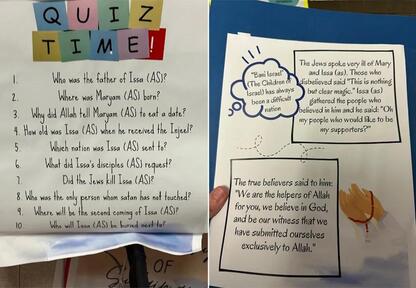 QUIZ
TIME!
1. Who was the father of Issa (AS)?
2. Where was Maryam (AS) born?
3. Why did Allah tell Maryam (AS) to eat a date?
4. How old was Issa (AS) when he received the Injeel?
5. Which nation was Issa (AS) sent to?
6. What did Issa's disciples (AS) request?
7. Did the Jews kill Issa (AS)?
8. Who was the only person whom satan has not touched?
9. Where will be the second coming of Issa (AS)?
10. Who will Issa (AS) be buried next to?
OF
"Bani Israel"
(The Children of
Israel) has always
been a difficult
nation
The Jews spoke very ill of Mary
and Issa (as). Those who
disbelieved said "This is nothing
but clear magic." Issa (as)
gathered the people who
believed in him and he said: "Oh
my people who would like to be
my supporters?"
The true believers said to him:
"We are the helpers of Allah
for you, we believe in God,
and be our witness that we
have submitted ourselves
exclusively to Allah."